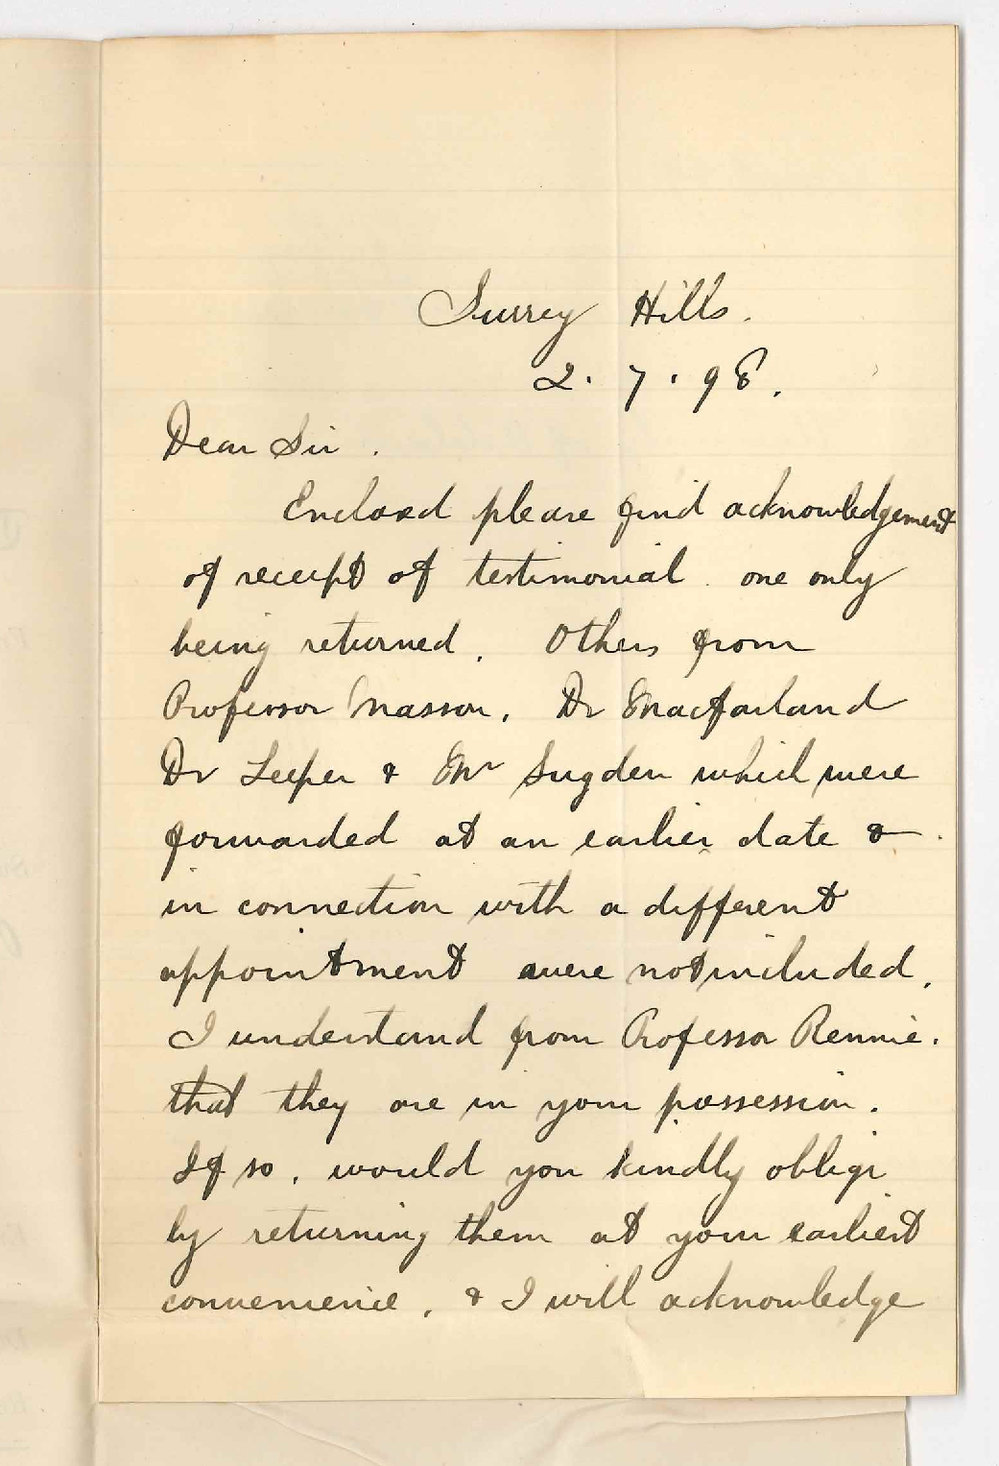 Surrey Hills.
2. 7. 98.
Dear Sir.
Enclosed please find acknowledgement
of receipt of testimonial. one only
being returned. Others from
Professor Masson. Dr Macfarland
Dr Leeper & Mr Sugden which were
forwarded at an earlier date &
in connection with a different
appointment were not included.
I understand from Professor Rennie.
that they are in your possession.
If so. would you kindly oblige
by returning them at your earliest
convenience. & I will acknowledge